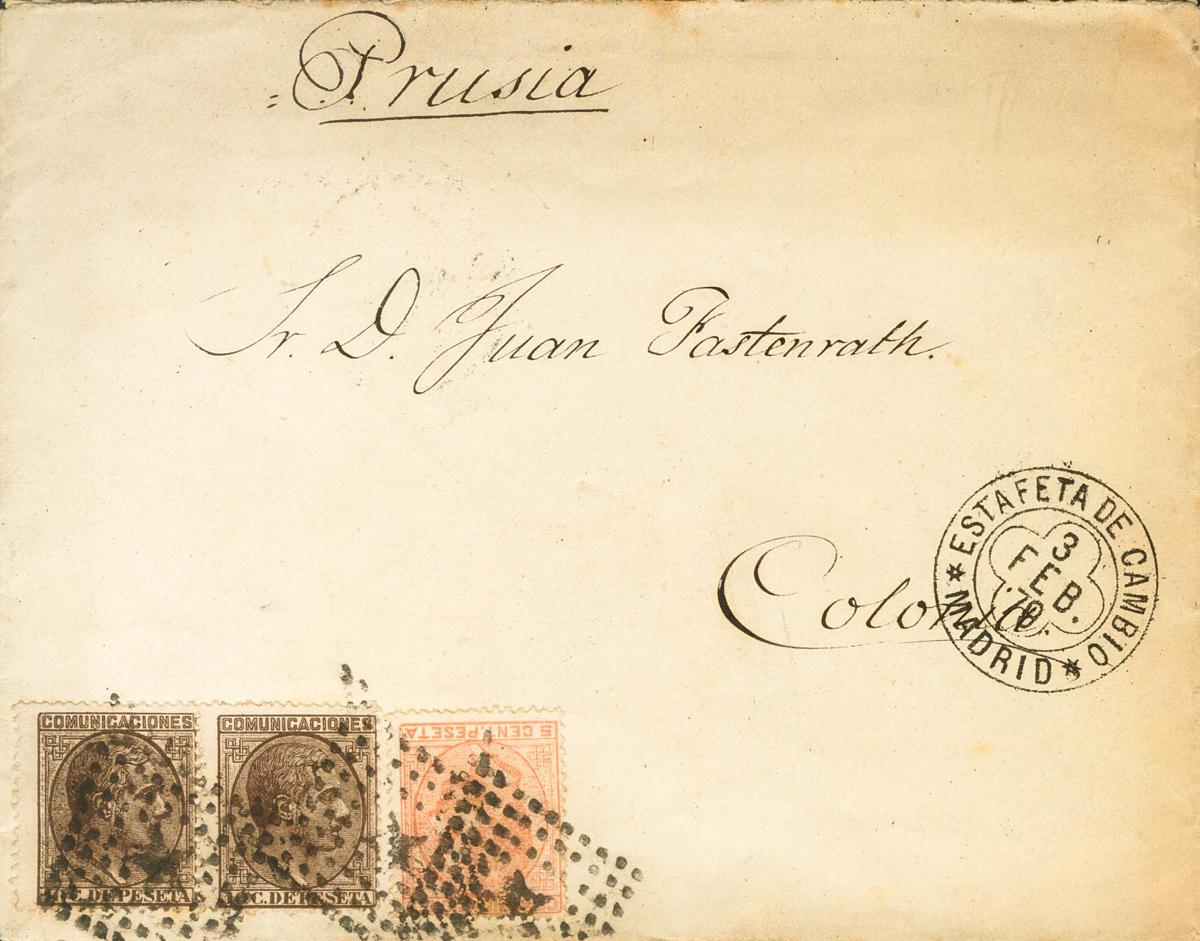 = Prusia
Sr. D. Juan Fastenrath.
Colonia.
ESTAFETA DE CAMBIO
3
FEB.
79
* MADRID *
COMUNICACIONES
10 C. DE PESETA
COMUNICACIONES
10 C. DE PESETA
5 CENT. PESETA